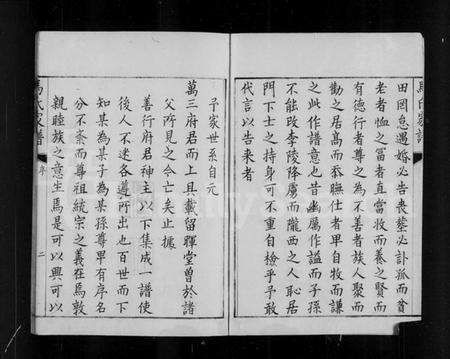 田罔怠遇婚必告喪塟必訃孤而貧
老者恤之富者直當牧而養之賢而
有德行者尊之為不善者族人聚而
勸之居髙而豭撫仕者卑自牧而謙
之此作譜意也昔幽厲作謚而子孫
不能改李陵降虜而隴西之人恥居
門下士之持身可不重自檢乎予敢
代言以告来者
子家世系自元
萬三府君而上具載留暉堂曽於諸
父所見之今亡矣止據
善行府君神主以下集成一譜使
後人不迷各遵所出也百世而下
知某為某子為某孫尊卑有序名
分不紊而尊祖統宗之義在焉敦
親睦族之意生焉是可以興可以
馬氏家譜
序
二